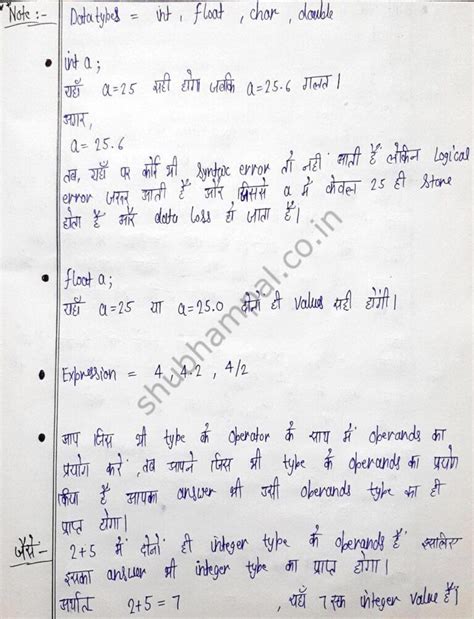 Note :- Datatypes = int, float, char, double
int a;
यहाँ a=25 सही होगा जबकि a=25.6 गलत।
अगर,
a=25.6
तब, यहाँ पर कोई भी syntax error तो नहीं आती है लेकिन logical
error जरूर आती है और जिससे a में केवल 25 ही store
होता है और data loss हो जाता है।
float a;
यहाँ a=25 या a=25.0 दोनो ही values सही होंगी।
Expression = 4, 4.2, 4/2
आप जिस भी type के operator के साथ में operands का
प्रयोग करें, तब आपने जिस भी type के operands का प्रयोग
किया है आपका answer भी उसी operands type का ही
प्राप्त होगा।
जैसे:- 2+5 में दोनों ही integer type के operands हैं इसलिए
इसका answer भी integer type का प्राप्त होगा।
अर्थात 2+5=7 , यहाँ 7 एक integer value है।
shubhampal.co.in